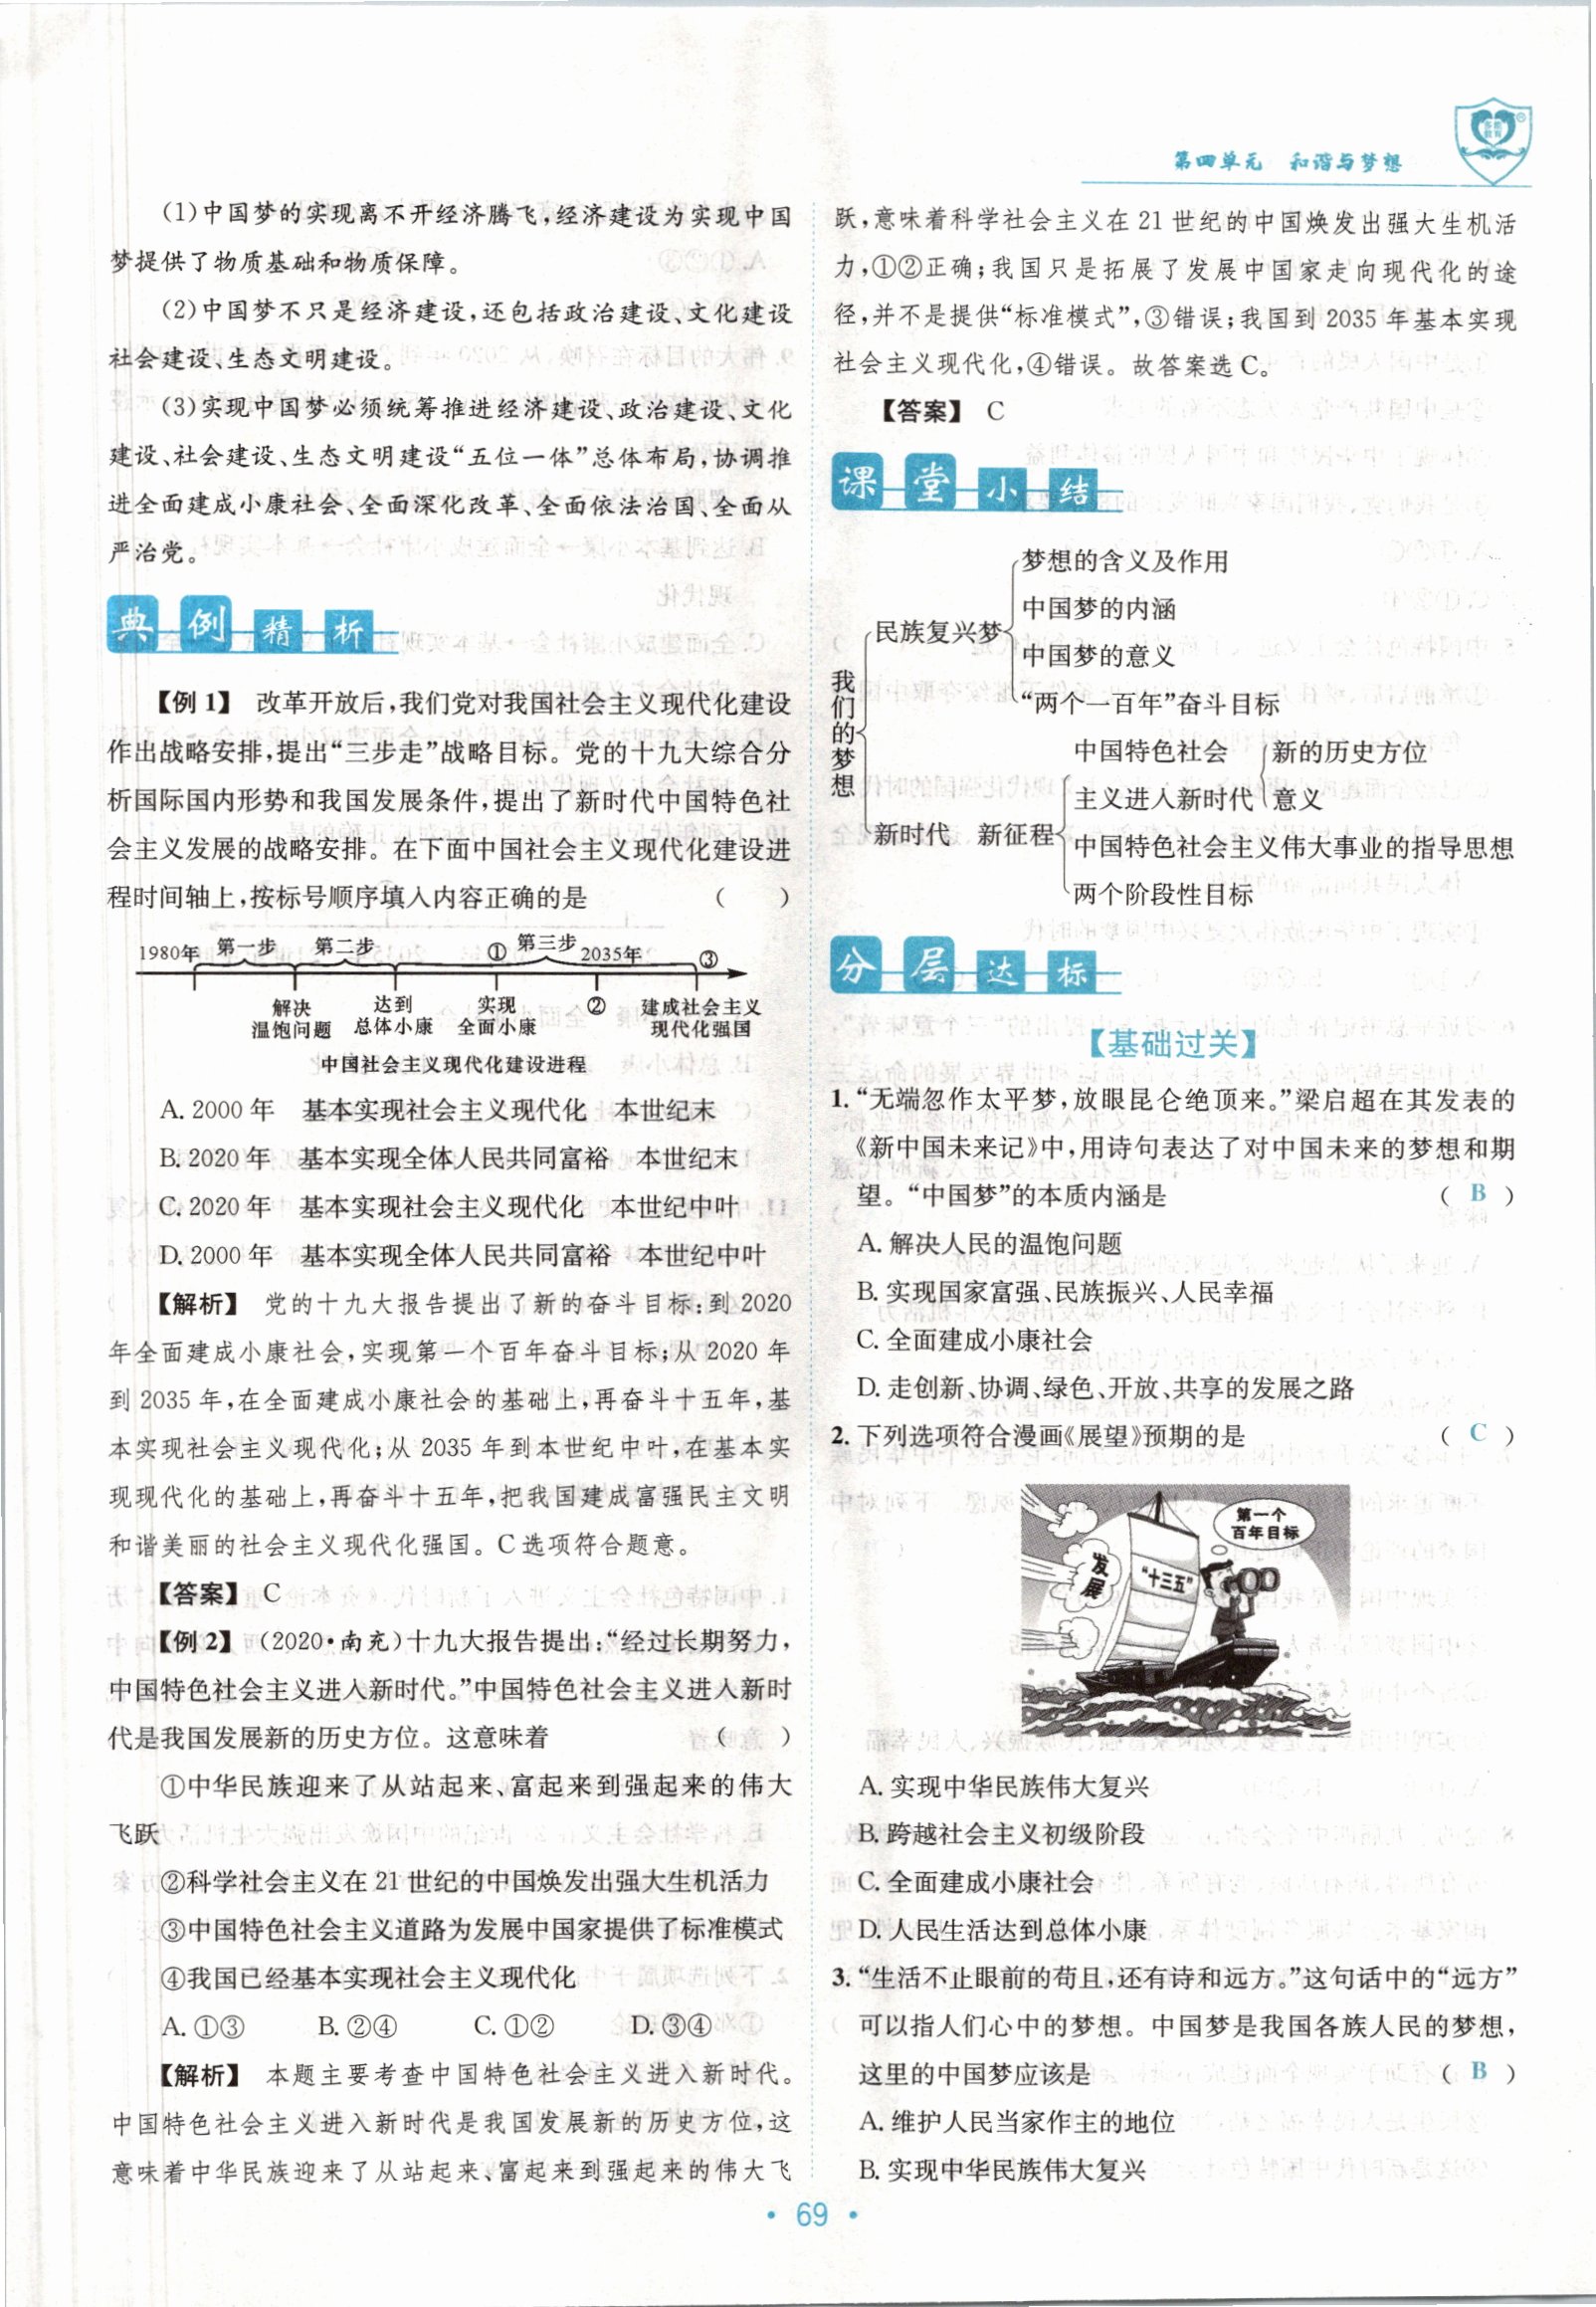 第四单元 和谐与梦想
(1)中国梦的实现离不开经济腾飞,经济建设为实现中国
梦提供了物质基础和物质保障。
(2)中国梦不只是经济建设,还包括政治建设、文化建设
社会建设、生态文明建设。
(3)实现中国梦必须统筹推进经济建设、政治建设、文化
建设、社会建设、生态文明建设“五位一体”总体布局,协调推
进全面建成小康社会、全面深化改革、全面依法治国、全面从
严治党。
典例精析
【例1】 改革开放后,我们党对我国社会主义现代化建设
作出战略安排,提出“三步走”战略目标。党的十九大综合分
析国际国内形势和我国发展条件,提出了新时代中国特色社
会主义发展的战略安排。在下面中国社会主义现代化建设进
程时间轴上,按标号顺序填入内容正确的是 ( )
1980年 第一步 第二步 ① 第三步 2035年 ③
解决 达到 实现 ② 建成社会主义
温饱问题 总体小康 全面小康 现代化强国
中国社会主义现代化建设进程
A. 2000年 基本实现社会主义现代化 本世纪末
B. 2020年 基本实现全体人民共同富裕 本世纪末
C. 2020年 基本实现社会主义现代化 本世纪中叶
D. 2000年 基本实现全体人民共同富裕 本世纪中叶
【解析】 党的十九大报告提出了新的奋斗目标:到2020
年全面建成小康社会,实现第一个百年奋斗目标;从2020年
到2035年,在全面建成小康社会的基础上,再奋斗十五年,基
本实现社会主义现代化;从2035年到本世纪中叶,在基本实
现现代化的基础上,再奋斗十五年,把我国建成富强民主文明
和谐美丽的社会主义现代化强国。C选项符合题意。
【答案】 C
【例2】 (2020·南充)十九大报告提出:“经过长期努力,
中国特色社会主义进入新时代。”中国特色社会主义进入新时
代是我国发展新的历史方位。这意味着 ( )
①中华民族迎来了从站起来、富起来到强起来的伟大
飞跃
②科学社会主义在21世纪的中国焕发出强大生机活力
③中国特色社会主义道路为发展中国家提供了标准模式
④我国已经基本实现社会主义现代化
A. ①③ B. ②④ C. ①② D. ③④
【解析】 本题主要考查中国特色社会主义进入新时代。
中国特色社会主义进入新时代是我国发展新的历史方位,这
意味着中华民族迎来了从站起来、富起来到强起来的伟大飞
跃,意味着科学社会主义在21世纪的中国焕发出强大生机活
力,①②正确;我国只是拓展了发展中国家走向现代化的途
径,并不是提供“标准模式”,③错误;我国到2035年基本实现
社会主义现代化,④错误。故答案选C。
【答案】 C
课堂小结
我们的梦想
民族复兴梦
梦想的含义及作用
中国梦的内涵
中国梦的意义
“两个一百年”奋斗目标
新时代 新征程
中国特色社会 新的历史方位
主义进入新时代 意义
中国特色社会主义伟大事业的指导思想
两个阶段性目标
分层达标
【基础过关】
1. “无端忽作太平梦,放眼昆仑绝顶来。”梁启超在其发表的
《新中国未来记》中,用诗句表达了对中国未来的梦想和期
望。“中国梦”的本质内涵是 ( B )
A. 解决人民的温饱问题
B. 实现国家富强、民族振兴、人民幸福
C. 全面建成小康社会
D. 走创新、协调、绿色、开放、共享的发展之路
2. 下列选项符合漫画《展望》预期的是 ( C )
第一个
百年目标
发展
“十三五”
A. 实现中华民族伟大复兴
B. 跨越社会主义初级阶段
C. 全面建成小康社会
D. 人民生活达到总体小康
3. “生活不止眼前的苟且,还有诗和远方。”这句话中的“远方”
可以指人们心中的梦想。中国梦是我国各族人民的梦想,
这里的中国梦应该是 ( B )
A. 维护人民当家作主的地位
B. 实现中华民族伟大复兴
· 69 ·